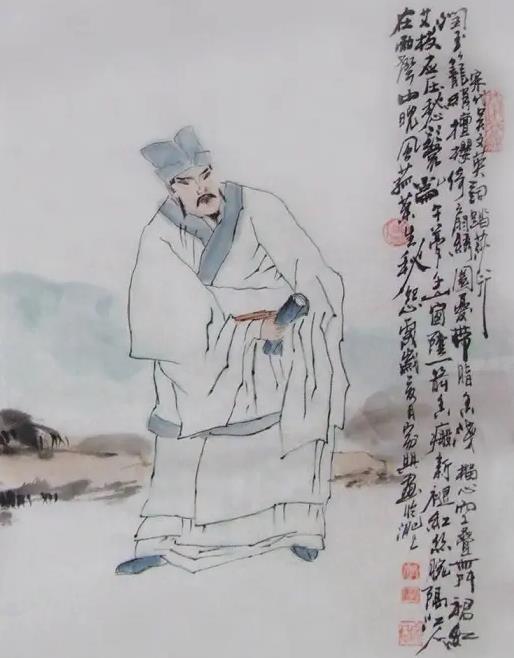 宋吴文英詞踏莎行
潤玉籠綃檀櫻倚扇繡圈猶帶脂香淺榴心空叠舞裙紅
艾枝應壓愁鬟亂午夢千山窗陰一箭香瘢新褪紅絲腕隔江人
在雨聲中晚風菰葉生秋怨